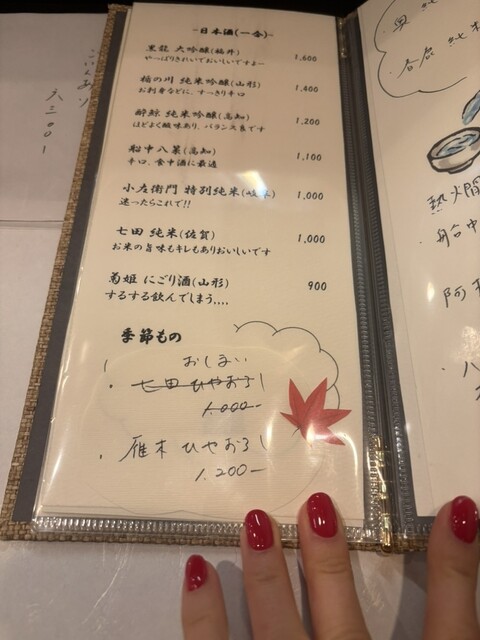 -日本酒(一合)-
黒龍 大吟醸(福井) 1,600
やっぱりきれいでおいしいですよー
楯の川 純米吟醸(山形) 1,400
お刺身などに、すっきり辛口
酔鯨 純米吟醸(高知) 1,200
ほどよく酸味あり、バランス良です
船中八策(高知) 1,100
辛口、食中酒に最適
小左衛門 特別純米(岐阜) 1,000
迷ったらこれで!!
七田 純米(佐賀) 1,000
お米の旨味もキレもありおいしいです
菊姫 にごり酒(山形) 900
するする飲んでしまう....
季節もの
おしまい
・七田 ひやおろし
1.000-
・雁木 ひやおろし
1.200-
熱燗
・船中
・八